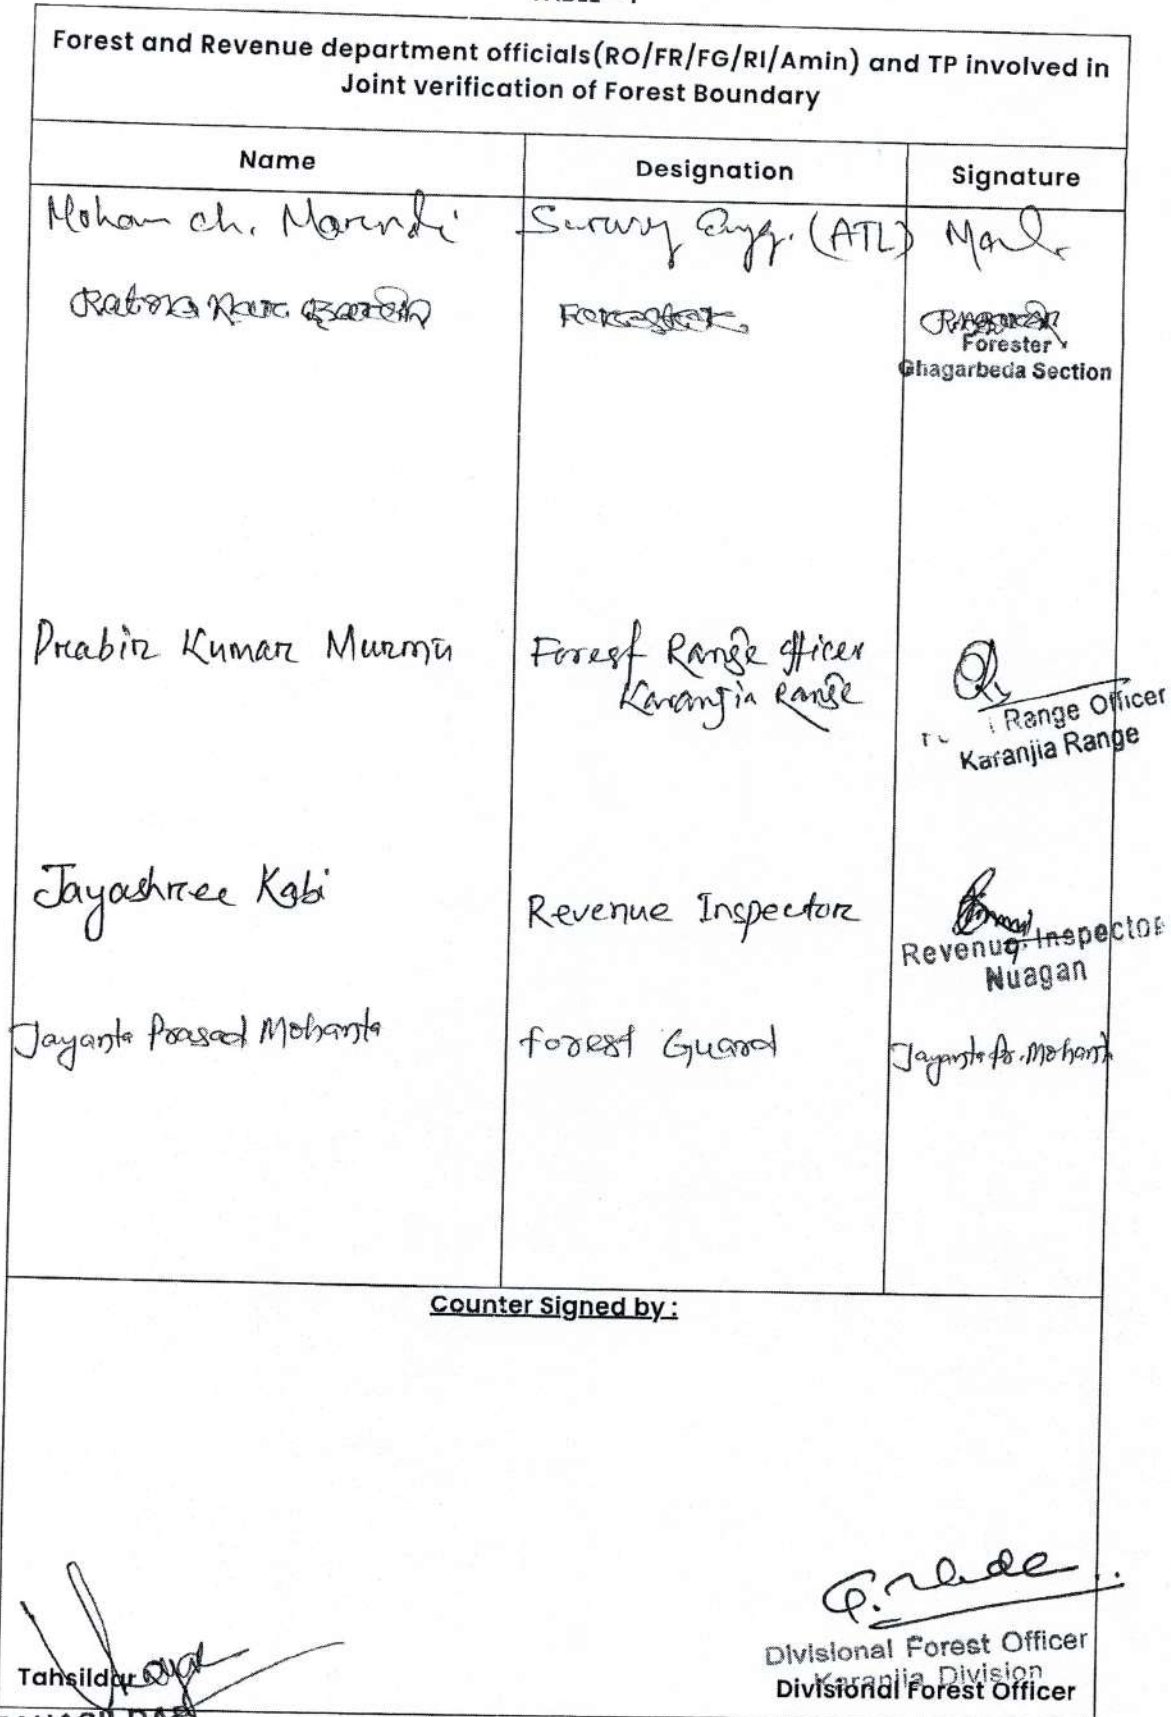 Forest and Revenue department officials(RO/FR/FG/RI/Amin) and TP involved in
Joint verification of Forest Boundary
Name Designation Signature
Mohan ch. Marndi Survey Engg. (ATL)
Forester
Forester
Ghagarbeda Section
Prabir Kumar Murmu Forest Range Officer
Karanjia Range
Range Officer
Karanjia Range
Jayashree Kabi Revenue Inspector
Revenue Inspector
Nuagan
Jayanta Prasad Mohanta forest Guard Jayanta Pr. Mohanta
Counter Signed by :
Divisional Forest Officer
Karanjia Division
Tahsildar Divisional Forest Officer